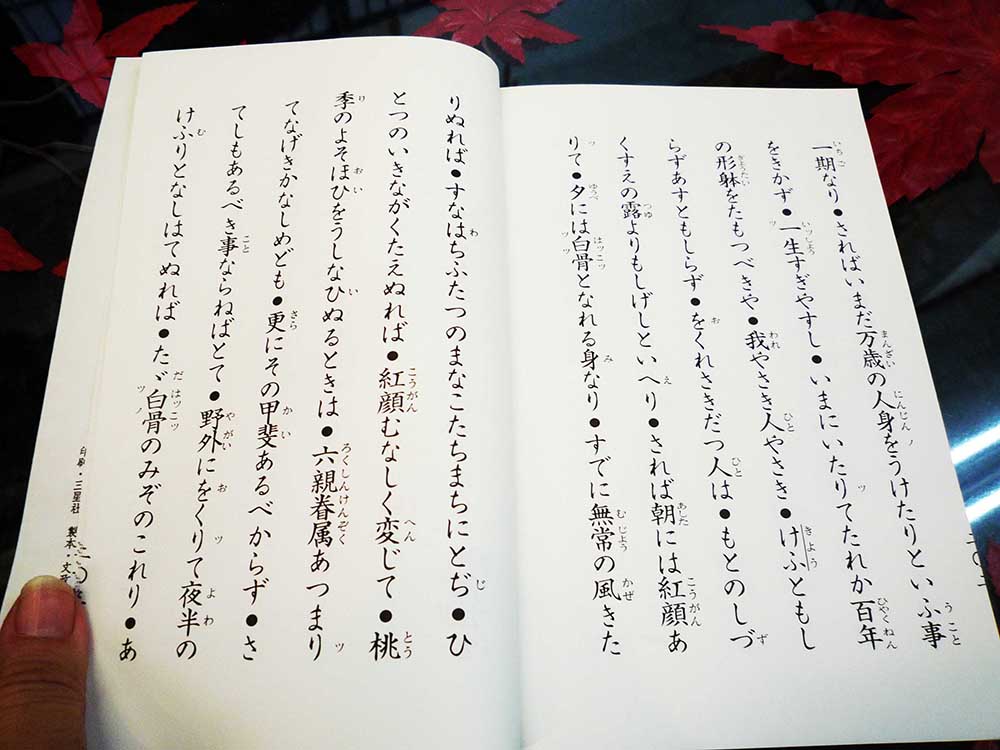 一期なり●さればいまだ万歳の人身をうけたりといふ事
をきかず●一生すぎやすし●いまにいたりてたれか百年
の形躰をたもつべきや●我やさき人やさき●けふともし
らずあすともしらず●をくれさきだつ人は●もとのしづ
くすえの露よりもしげしといへり●されば朝には紅顔あ
りて●夕には白骨となれる身なり●すでに無常の風きた
りぬれば●すなはちふたつのまなこたちまちにとぢ●ひ
とつのいきながくたえぬれば●紅顔むなしく変じて●桃
季のよそほひをうしなひぬるときは●六親眷属あつまり
てなげきかなしめども●更にその甲斐あるべからず●さ
てしもあるべき事ならねばとて●野外にをくりて夜半の
けふりとなしはてぬれば●たゞ白骨のみぞのこれり●あ
印刷・三星社 製本・文政